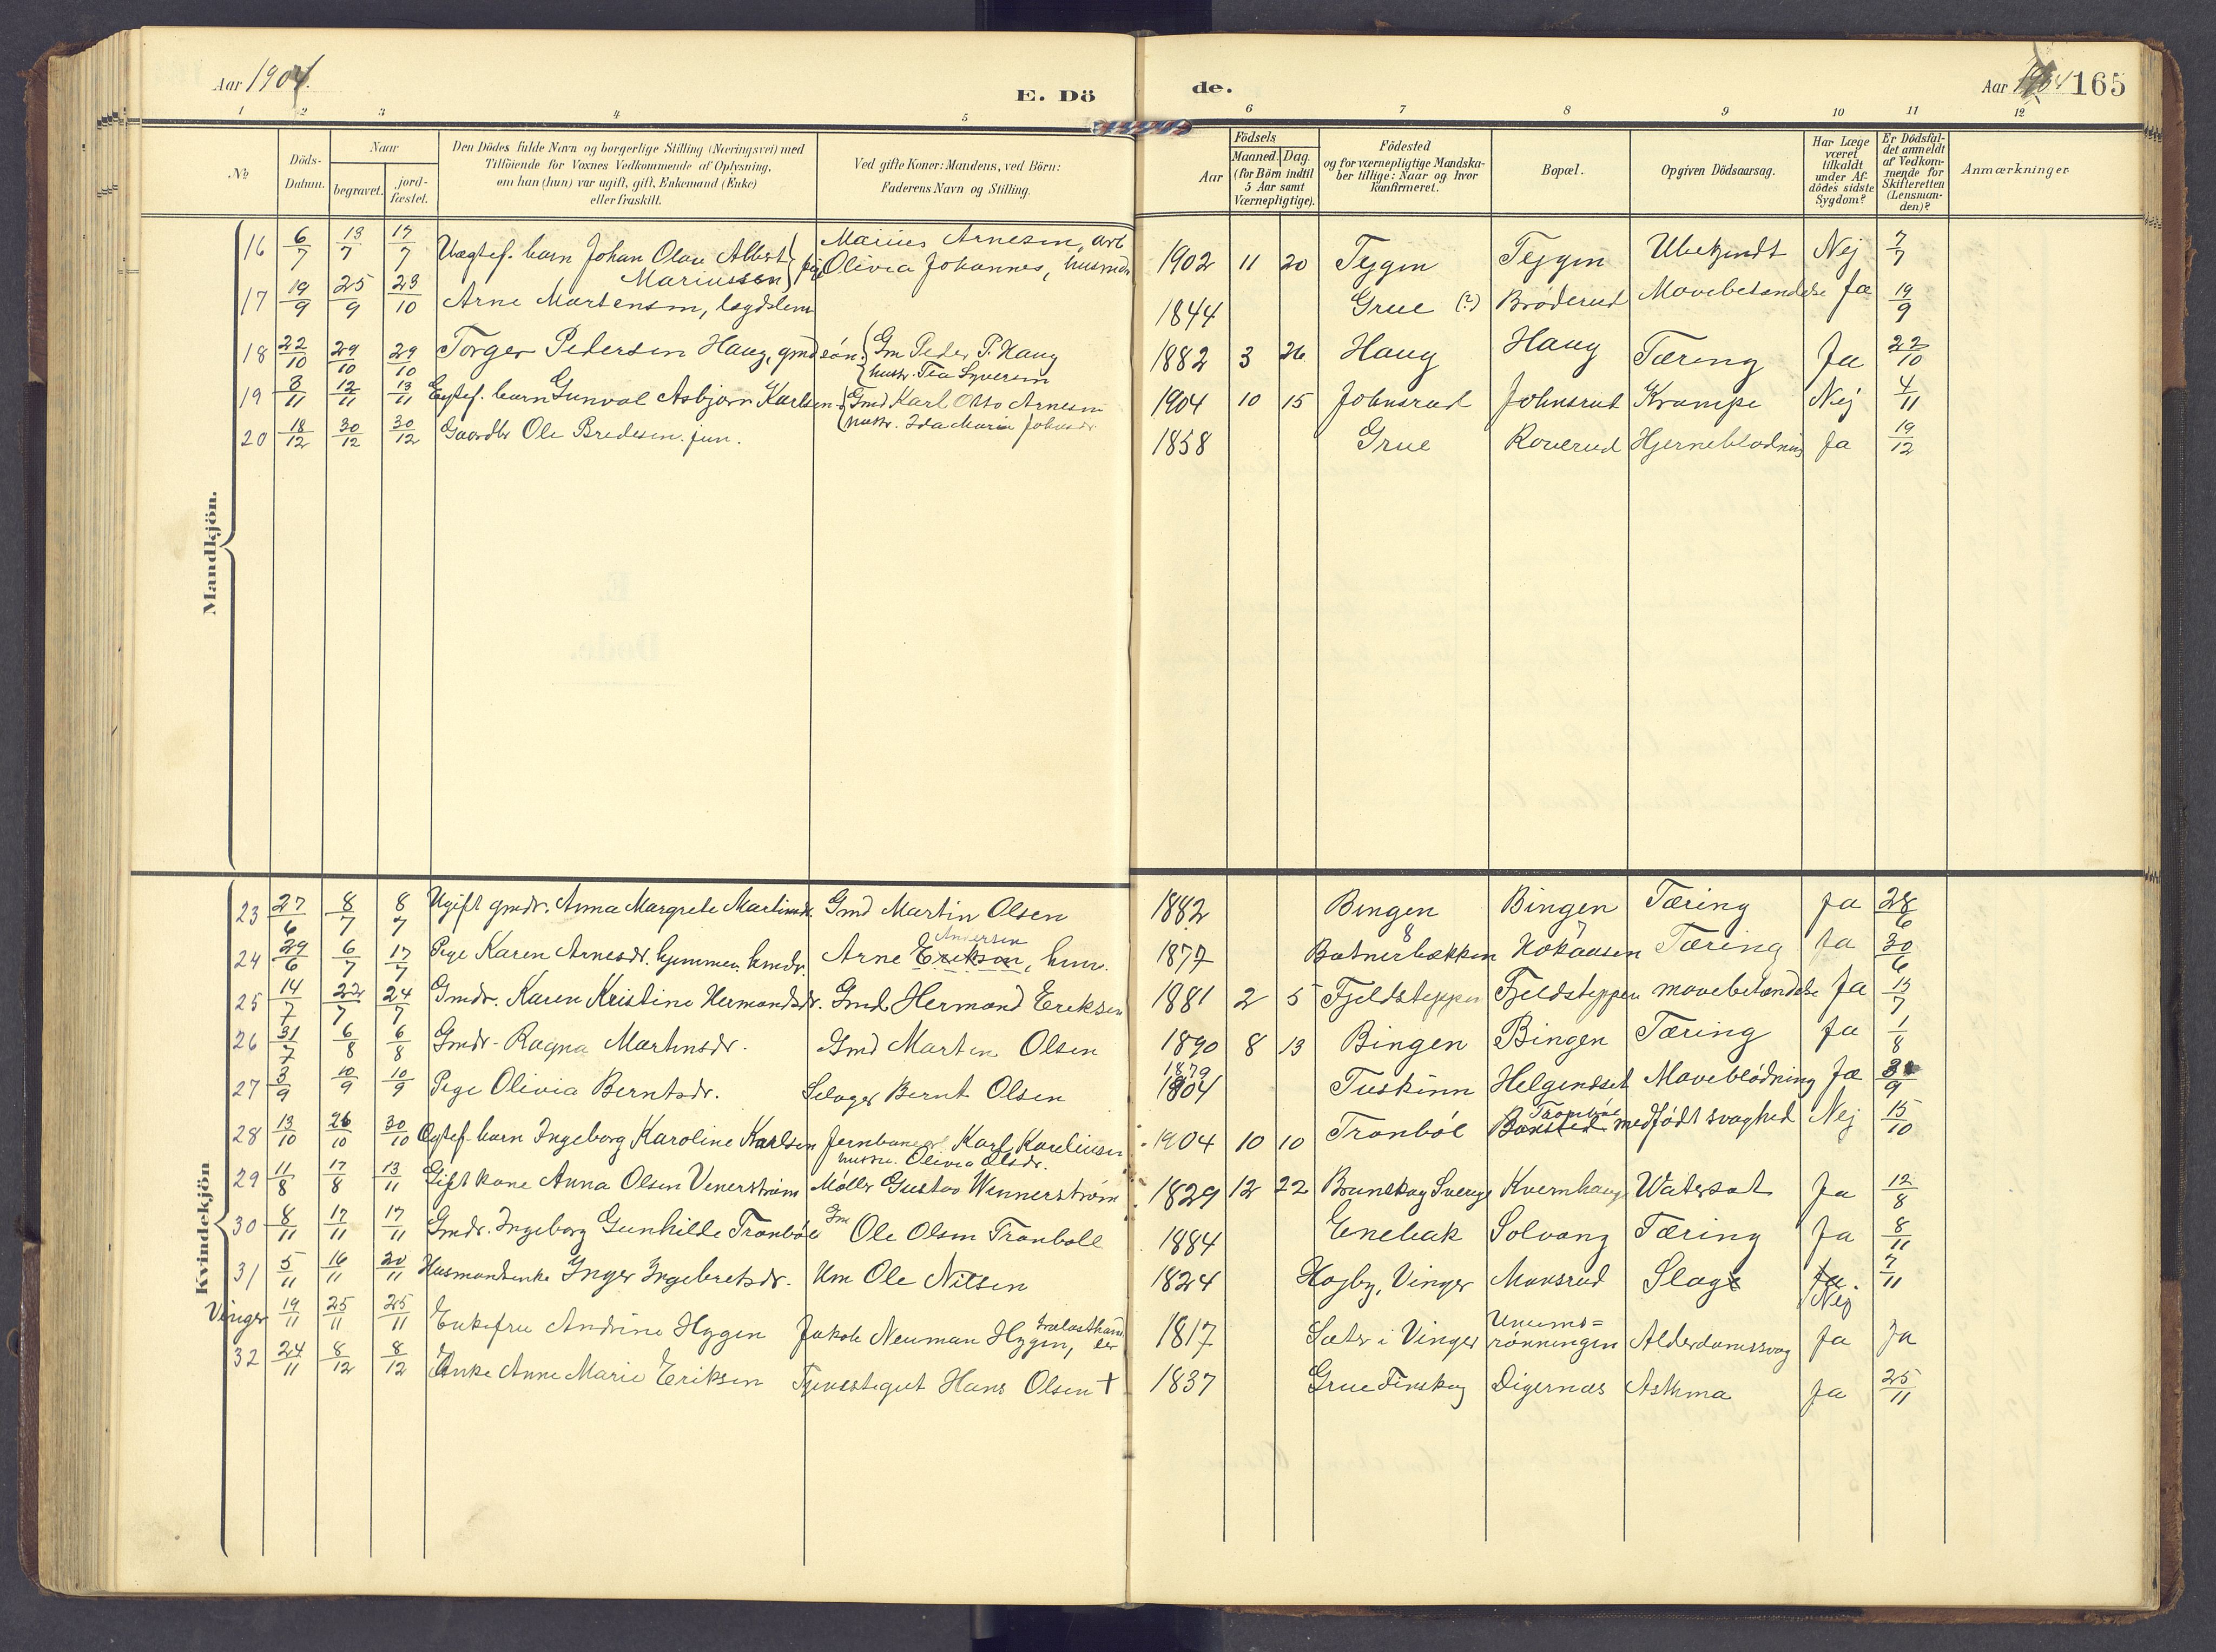 Aar 1904. E. Dö de. Aar 1904 165
1 2 3 4 5 6 7 8 9 10 11 12
№ Döds-Datum. Naar begravet. jord-fæstet. Den Dödes fulde Navn og borgerlige Stilling (Næringsvei) med Tilföiende for Voxnes Vedkommende af Oplysning, om han (hun) var ugift, gift, Enkemand (Enke) eller fraskilt. Ved gifte Koner: Mandens, ved Börn: Faderens Navn og Stilling. Aar Födsels Maaned. Dag. (for Börn indtil 5 Aar samt Værnepligtige). Födested og for værnepligtige Mandskaber tillige: Naar og hvor konfirmeret. Bopæl. Opgiven Dödsaarsag. Har Læge været tilkaldt under Afdödes sidste Sygdom? Er Dödsfaldet anmeldt af Vedkommende for Skifteretten (Lensmanden)? Anmærkninger.
Mandkjön.
16 6/7 13/7 17/7 Uægtef. barn Johan Olav Albert Mariussen Marius Arnesen, arb Olivia Johannes, husmd 1902 11 20 Tyggen Tyggen Ubekjendt Nej 7/7
17 19/9 25/9 23/10 Arne Martensen, lægdslem 1844 Grue (?) Bröderud Mavebetændelse Ja 19/9
18 22/10 29/10 29/10 Torger Pedersen Haug, gmdsön. Gm Peder P. Haug hustr. Tea Syversen 1882 3 26 Haug Haug Tæring Ja 22/10
19 3/11 12/11 13/11 Egtef. barn Gunval Asbjørn Karlsen Gmd Karl Otto Arnesen hustr. Ida Marie Johnsdr. 1904 10 15 Johnsrud Johnsrud Krampe Nej 4/11
20 18/12 30/12 30/12 Gaardbr Ole Bredesen jun. 1858 Grue Roverud Hjerneblødning Ja 19/12
Kvindekjön
23 27/6 8/7 8/7 Ugift gmdr. Anna Margrete Martinsdr. Gmd Martin Olsen 1882 Bingen Bingen Tæring Ja 28/6
24 29/6 6/7 17/7 Pige Karen Arnesdr. hjemmev. hmdr. Arne Erikson Andersen, hmd. 1877 Batnerbækken Hokaasen Tæring Ja 30/6
25 14/7 22/7 24/7 Gmdr. Karen Kristine Hermandsdr. Gmd Hermand Eriksen 1881 2 5 Fjeldsteppen Fjeldsteppen mavebetændelse Ja 15/7
26 31/7 6/8 6/8 Gmdr. Ragna Martinsdr. Gmd Martin Olsen 1890 8 13 Bingen Bingen Tæring Ja 1/8
27 3/9 10/9 10/9 Pige Olivia Berntsdr. Selvger Bernt Olsen 1904 1879 Tuskinn Helgendset Maveblödning Ja 3/9
28 13/10 26/10 30/10 Egtef. barn Ingeborg Karoline Karlsen Jernbanearb. Karl Kareliusen hustru. Olivia Olsdr. 1904 10 10 Tranböl Baksted Tranböl medfödt svaghed Nej 15/10
29 11/8 17/8 13/11 Gift kone Anna Olsen Venerström Möller Gustav Wennerström 1829 12 22 Brunskog Sverige Kvernhaug Watersot Ja 12/8
30 8/11 17/11 17/11 Gmdr. Ingeborg Gunhilde Tranböl Gm Ole Olsen Tranböll 1884 Enebak Solvang Tæring Ja 8/11
31 5/11 16/11 20/11 Husmandsenke Inger Ingebretsdr. Hm Ole Nilsen 1824 Hojby, Vinger Monsrud Slag Ja. Nej 7/11
Vinger 19/11 25/11 25/11 Enkefru Andrine Hygen Jakob Neuman Hygen, trælasthandler 1817 Sæter i Vinger Unumsrönningen Alderdomssvag Ja Ja
32 24/11 8/12 8/12 Enke Anne Marie Eriksen Tjenestegut Hans Olsen + 1837 Grue Finskog Digernæs Asthma Ja 25/11